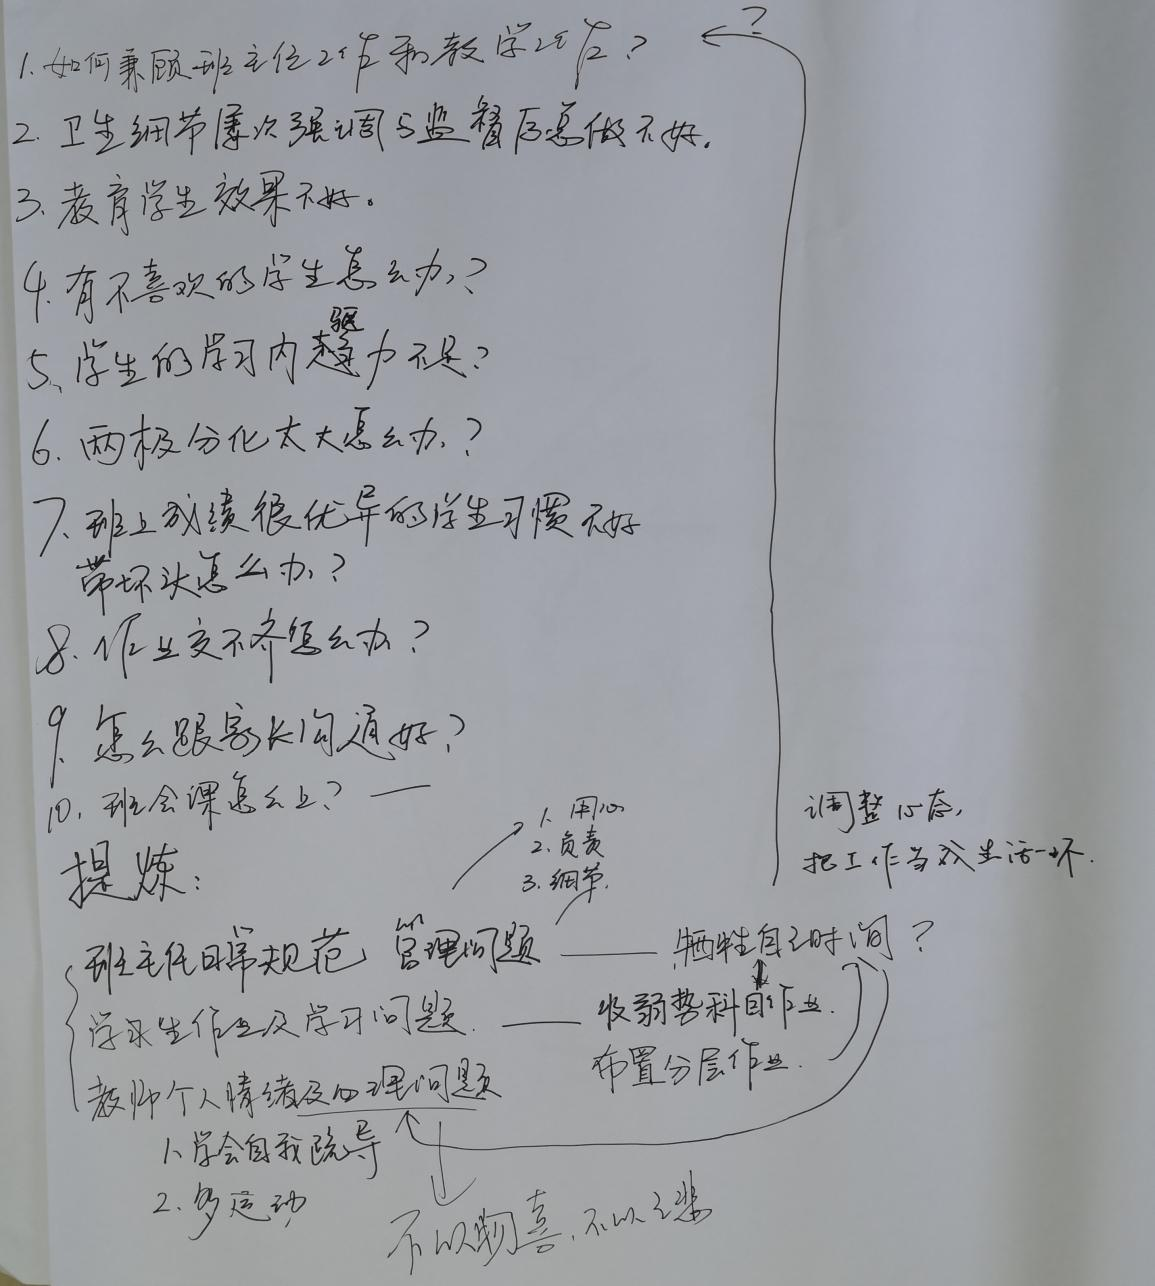 ?
1. 如何兼顾班主任工作和教学工作?
2. 卫生细节屡次强调与监督后总做不好。
3. 教育学生效果不好。
4. 有不喜欢的学生怎么办?
5、学生的学习内驱力不足?
6. 两极分化太大怎么办?
7. 班上成绩很优异的学生习惯不好
带坏头怎么办?
8. 作业交不齐怎么办?
9. 怎么跟家长沟通好?
10. 班会课怎么上?
提炼:
1. 用心
2. 负责
3. 细节.
调整心态,
把工作当成生活一环.
班主任日常规范 管理问题 —— 牺牲自己时间?
学生作业及学习问题. —— 收弱势科目作业.
布置分层作业.
教师个人情绪及心理问题
1. 学会自我疏导
2. 多运动
不以物喜,不以己悲